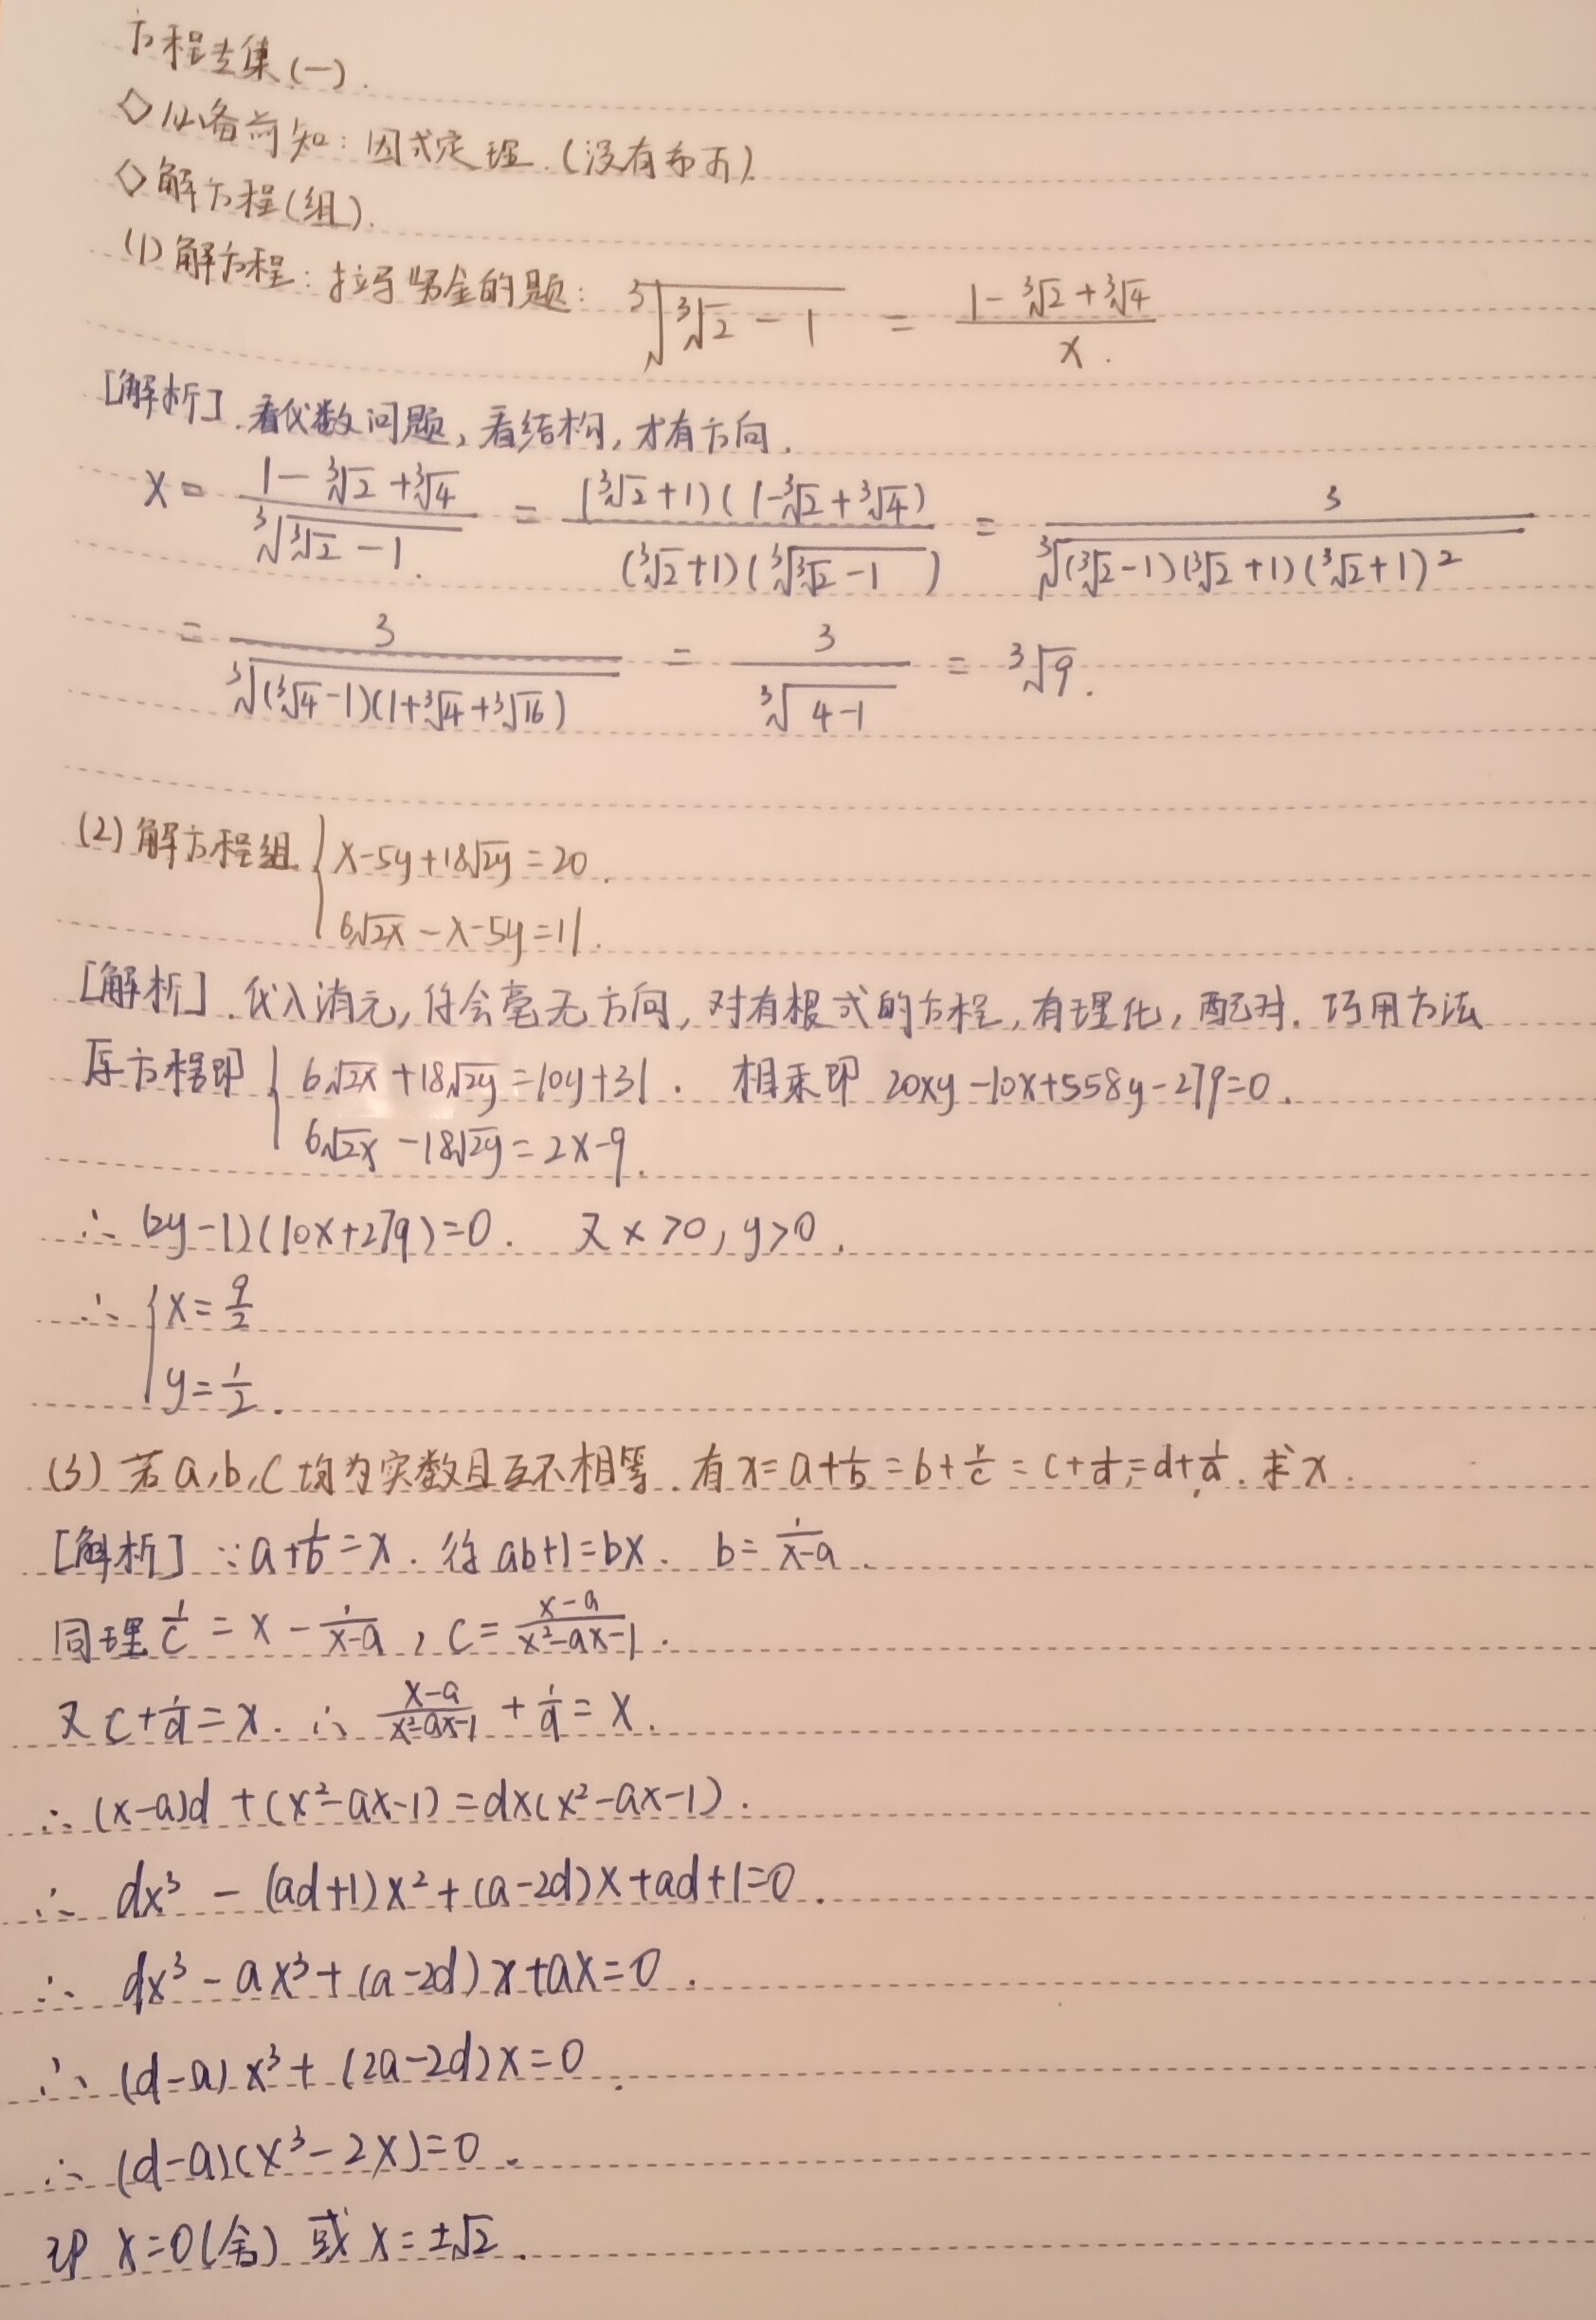 方程专集(一).
◇必备前知:因式定理.(没有印西)
◇解方程(组).
(1)解方程:拉马努金的题: ∛(∛2 - 1) = (1-∛2+∛4)/x.
[解析].看代数问题,看结构,才有方向.
x = (1-∛2+∛4)/∛(∛2-1) = (∛2+1)(1-∛2+∛4)/((∛2+1)(∛(∛2-1))) = 3/∛((∛2-1)(∛2+1)(∛2+1)²)
= 3/∛((∛4-1)(1+∛4+∛16)) = 3/∛(4-1) = ∛9.
(2)解方程组 { x-5y+18√2y=20.
6√2x-x-5y=11.
[解析].代入消元,你会毫无方向,对有根式的方程,有理化,配对.巧用方法
原方程即 { 6√2x+18√2y=10y+31. 相乘即 20xy-10x+558y-279=0.
6√2x-18√2y=2x-9.
∴ (2y-1)(10x+279)=0. 又x>0,y>0.
∴ { x=9/2
y=1/2.
(3)若a,b,c均为实数且互不相等.有x=a+1/b=b+1/c=c+1/d=d+1/a.求x.
[解析] ∵a+1/b=x.得ab+1=bx. b=1/(x-a).
同理1/c=x-1/(x-a), c=(x-a)/(x²-ax-1).
又c+1/d=x.∴ (x-a)/(x²-ax-1)+1/d=x.
∴(x-a)d+(x²-ax-1)=dx(x²-ax-1).
∴ dx³-(ad+1)x²+(a-2d)x+ad+1=0.
∴ dx³-ax³+(a-2d)x+ax=0.
∴ (d-a)x³+(2a-2d)x=0.
∴ (d-a)(x³-2x)=0.
即 x=0(舍)或x=±√2.